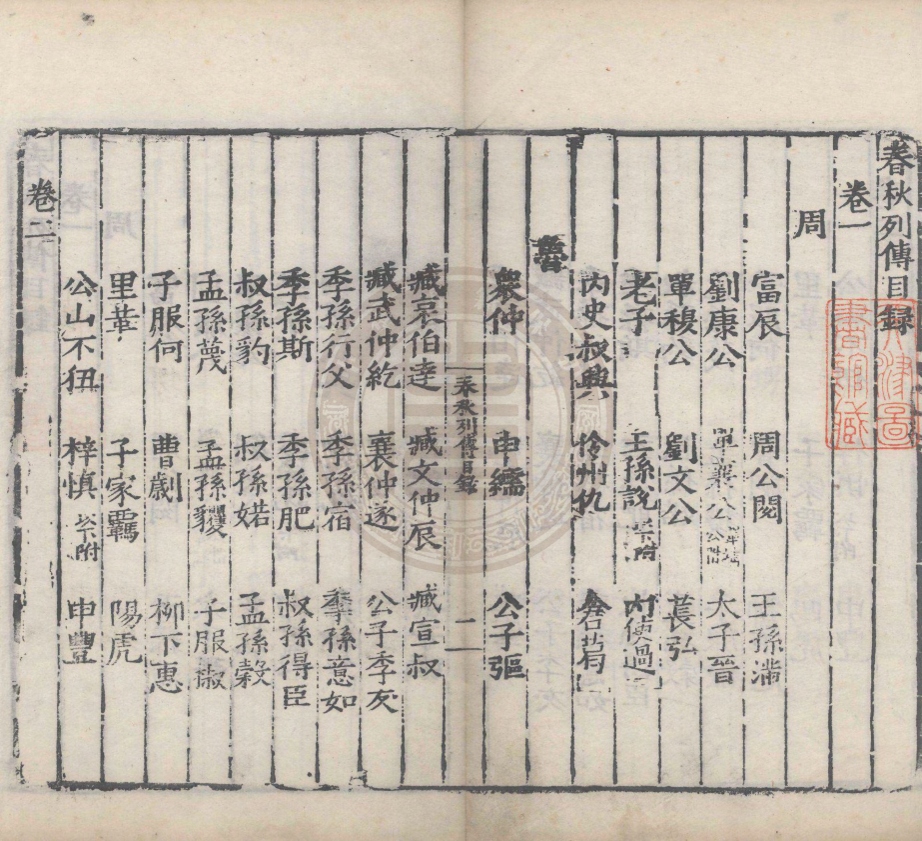 春秋列傳目録
卷一
周
富辰 周公閱 王孫滿
劉康公 單襄公 太子晉
單穆公 劉文公 萇弘
老子 王孫說 附 內史過
內史叔興 伶州仇
魯
衆仲 申繻 公子彄
春秋列傳目錄 二
臧哀伯達 臧文仲辰 臧宣叔
臧武仲紇 襄仲遂 公子季友
季孫行父 季孫宿 季孫意如
季孫斯 季孫肥 叔孫得臣
叔孫豹 叔孫婼 孟孫穀
孟孫蔑 孟孫貜 子服椒
子服何 曹劌 柳下惠
里革 子家羈 陽虎
公山不狃 梓慎 附 申豐
卷二
天津圖
書館藏